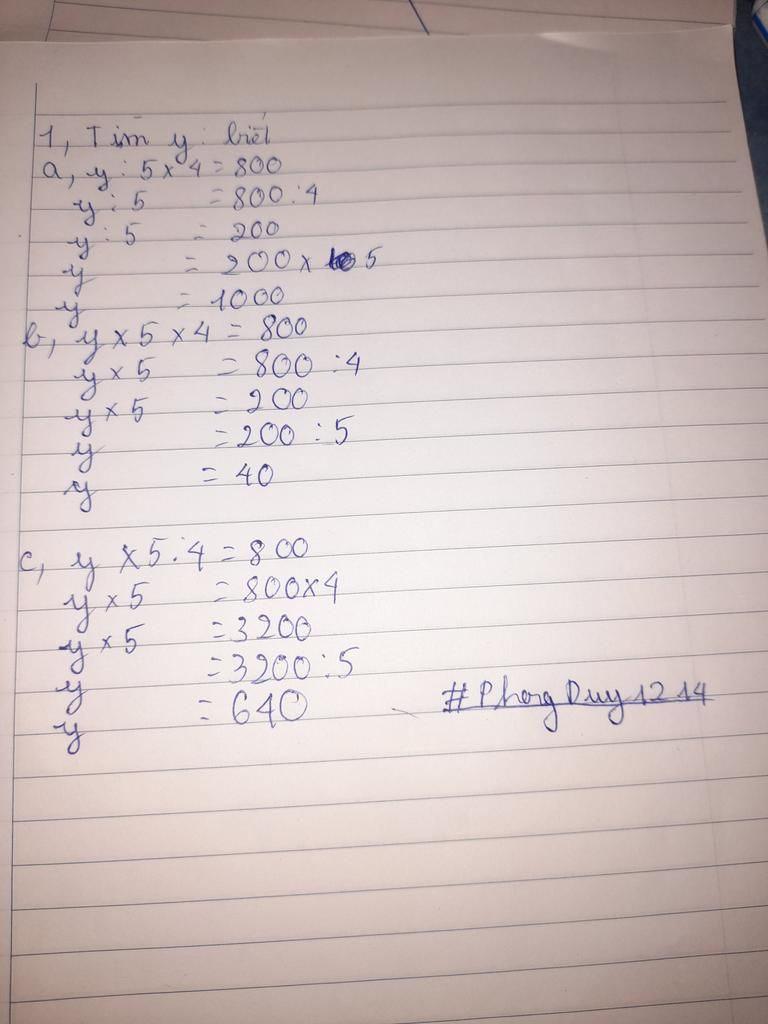 1, Tìm y: biết
a, y : 5 x 4 = 800
y : 5 = 800 : 4
y : 5 = 200
y = 200 x 5
y = 1000
b, y x 5 x 4 = 800
y x 5 = 800 : 4
y x 5 = 200
y = 200 : 5
y = 40
c, y x 5 : 4 = 800
y x 5 = 800 x 4
y x 5 = 3200
y = 3200 : 5
y = 640
#Phong Duy 1214